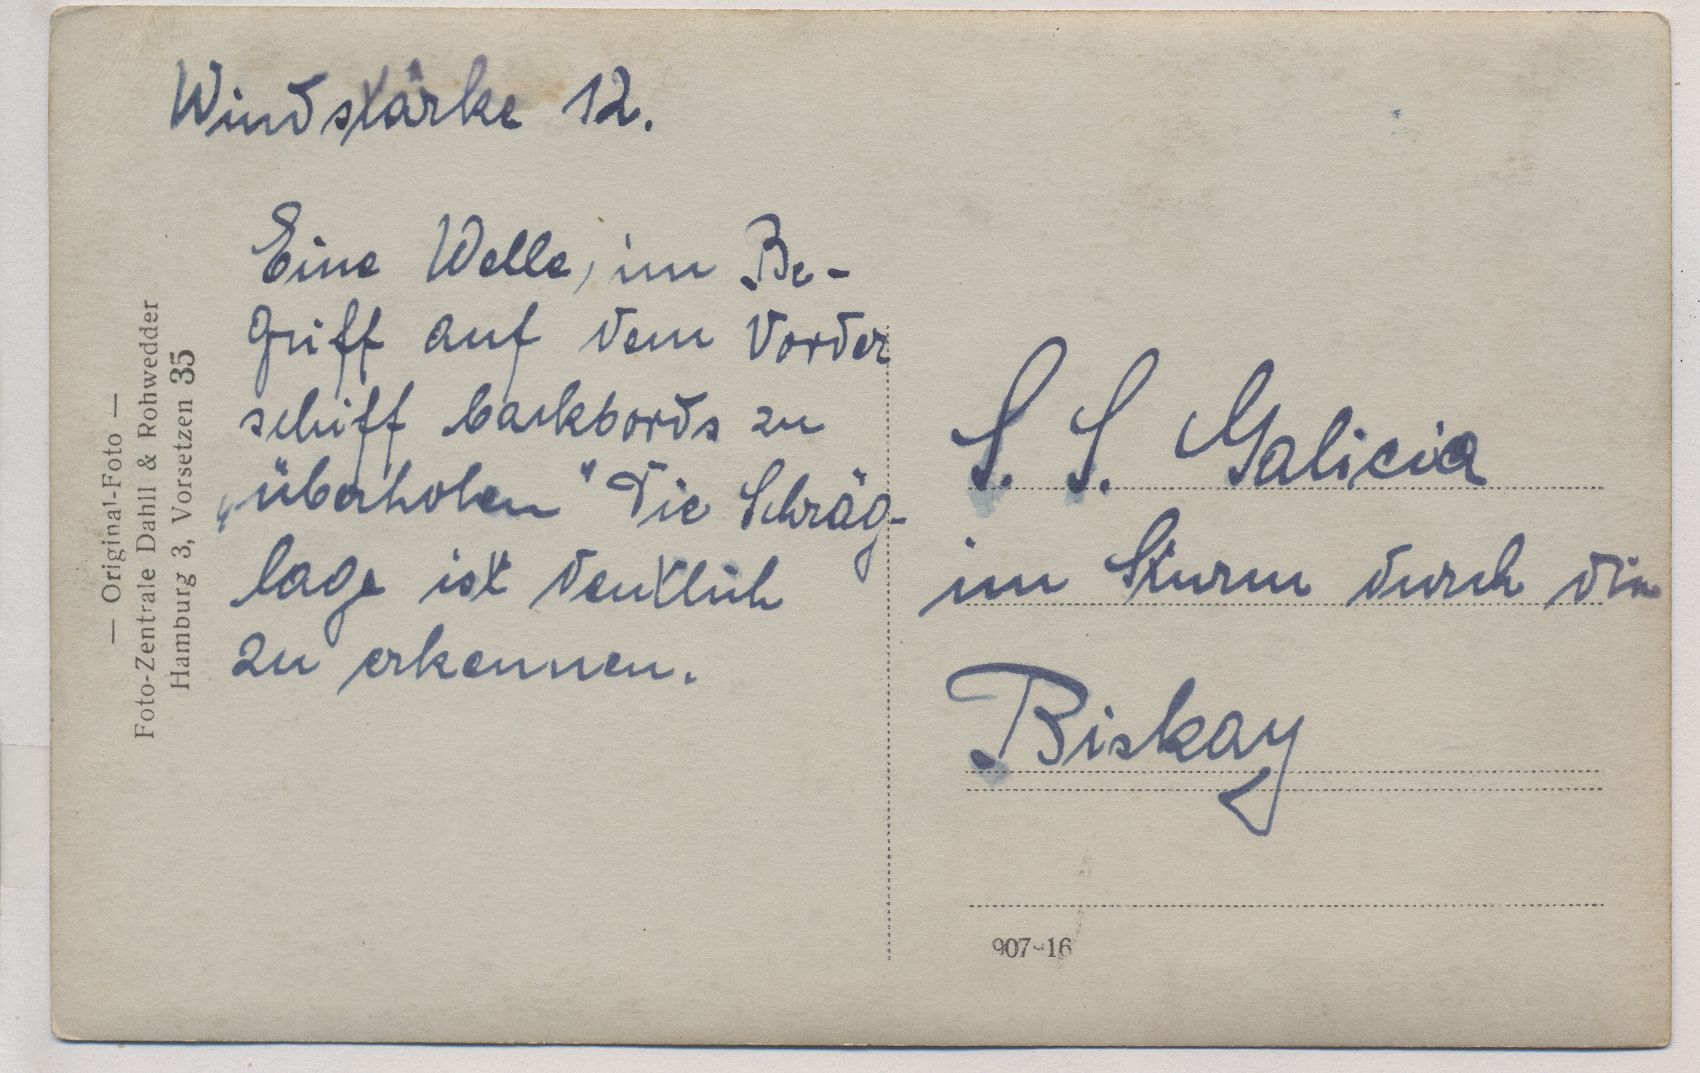 Windstärke 12.
Eine Welle, im Be-
griff auf dem Vorder
schiff backbords zu
„überholen" Die Schräg-
lage ist deutlich
zu erkennen.
S. S. Galicia
im Sturm durch die
Biskay
— Original-Foto —
Foto-Zentrale Dahll & Rohwedder
Hamburg 3, Vorsetzen 35
907-16